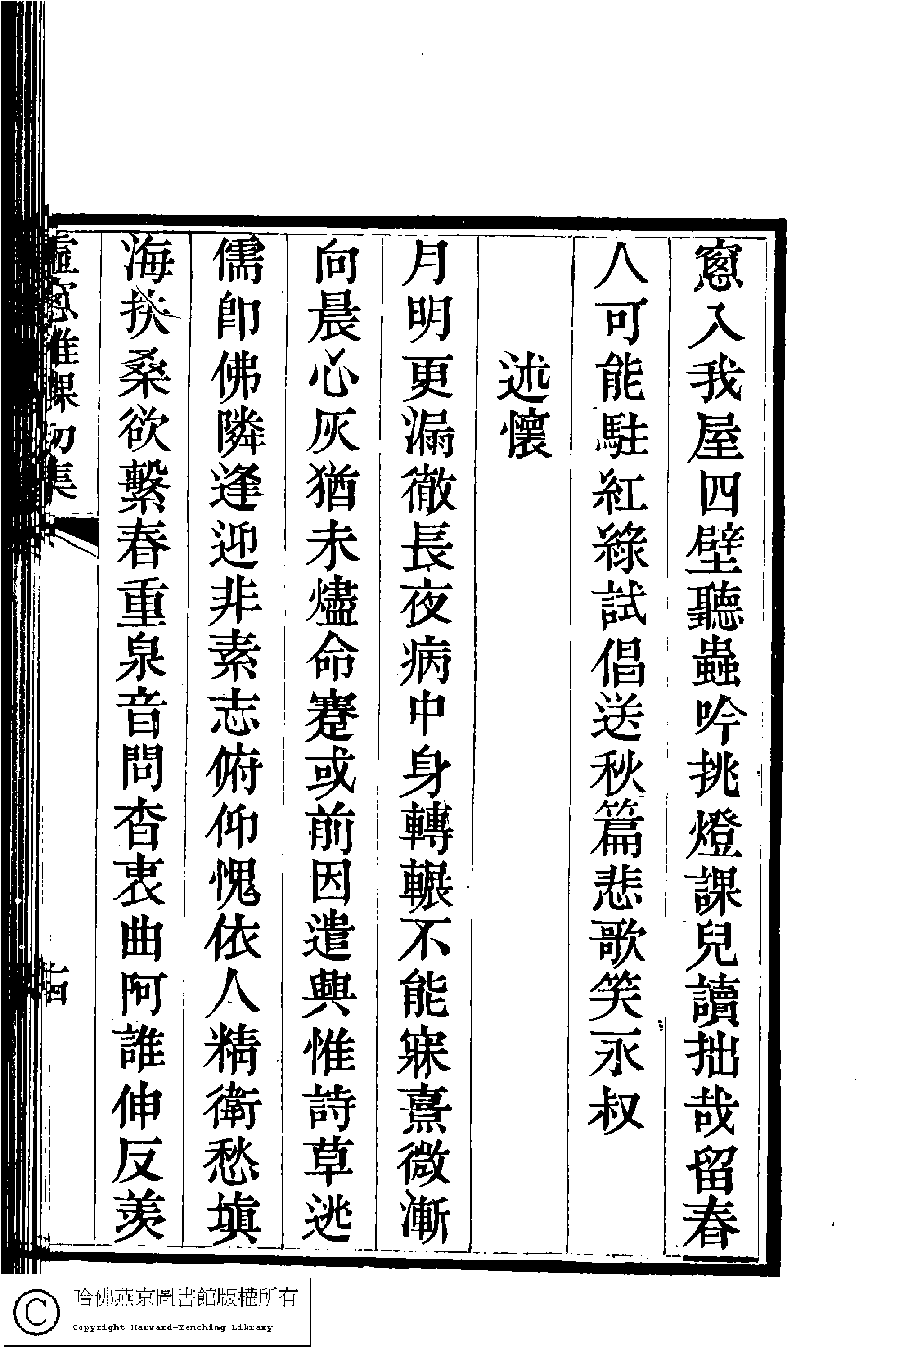 窻入我屋四壁聽蟲吟挑燈課兒讀拙哉留春
人可能駐紅綠試倡送秋篇悲歌笑永叔
述懷
月明更漏徹長夜病中身轉輾不能寐熹微漸
向晨心灰猶未燼命蹇或前因遣興惟詩草逃
儒卽佛隣逢迎非素志俯仰愧依人精衛愁塡
海扶桑欲繫春重泉音問杳衷曲阿誰伸反羡
課初集
十四
哈佛燕京圖書館版權所有
Copyright Harvard-Yenching Library